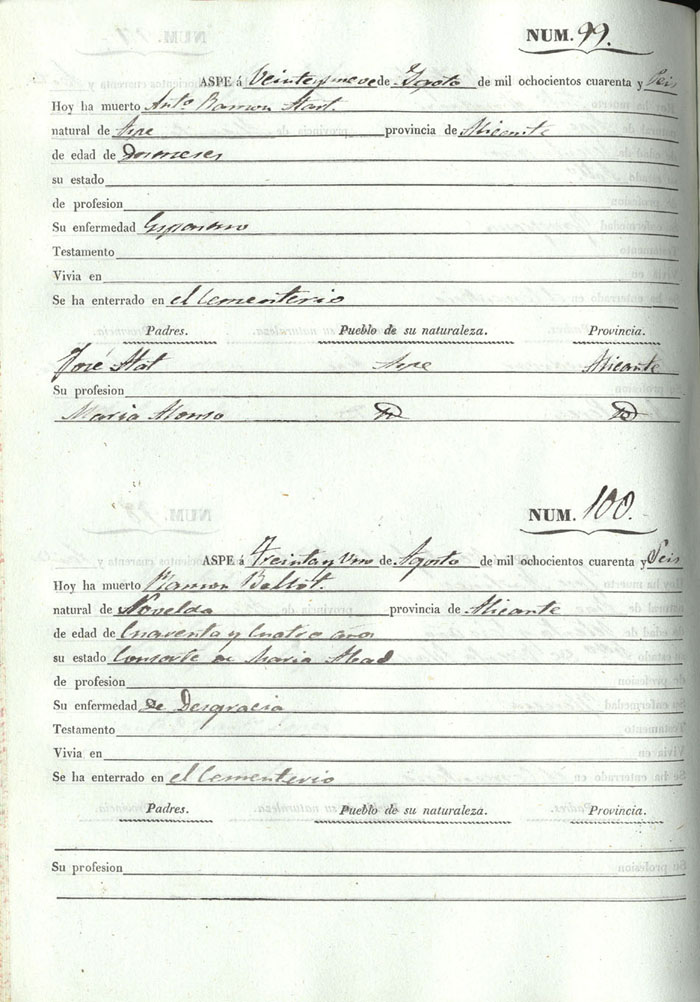 NUM. 99.
ASPE á Veinteynueve de Agosto de mil ochocientos cuarenta y Seis
Hoy ha muerto Antº Ramon
natural de Aspe provincia de Alicante
de edad de Dosmeses
su estado
de profesion
Su enfermedad
Testamento
Vivia en
Se ha enterrado en el Cementerio
Padres. Pueblo de su naturaleza. Provincia.
José Aspe Alicante
Su profesion
Maria Alonso
NUM. 100.
ASPE á Treintayuno de Agosto de mil ochocientos cuarenta y Seis
Hoy ha muerto Ramon
natural de Novelda provincia de Alicante
de edad de Cuarenta y Cuatro año
su estado Consorte de Maria Abad
de profesion
Su enfermedad de Desgracia
Testamento
Vivia en
Se ha enterrado en el Cementerio
Padres. Pueblo de su naturaleza. Provincia.
Su profesion